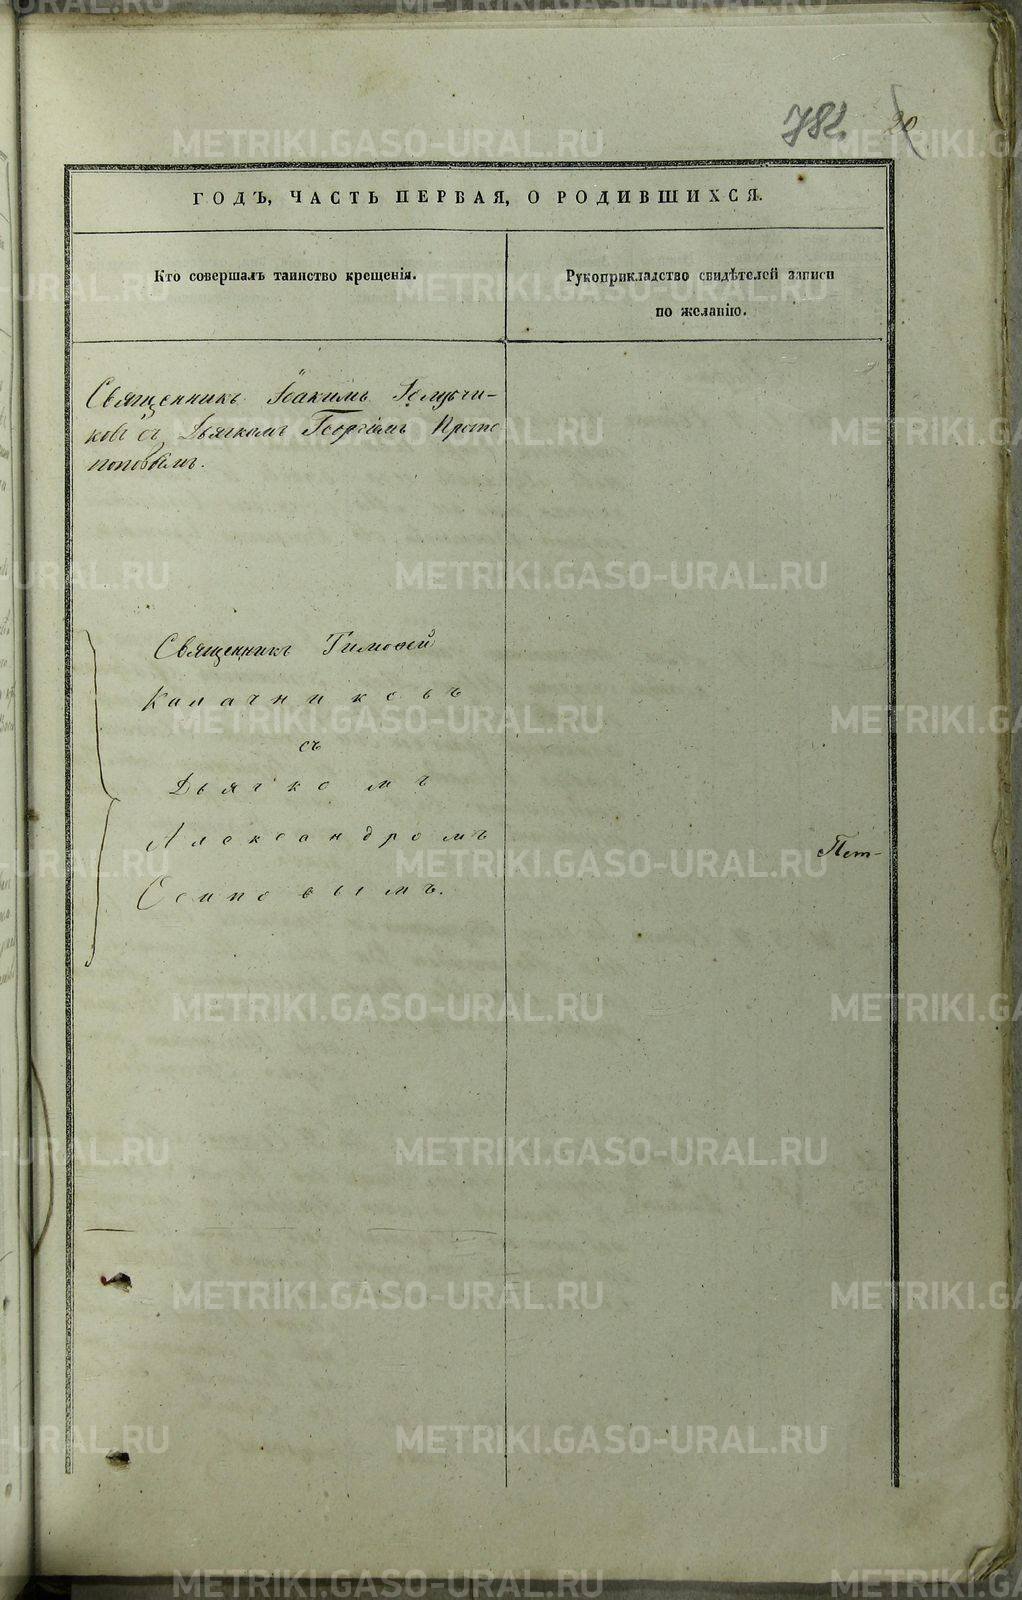 782. 20
ГОДЪ, ЧАСТЬ ПЕРВАЯ, О РОДИВШИХСЯ.
Кто совершалъ таинство крещенія.
Рукоприкладство свидѣтелей записи
по желанію.
Священникъ Іоакимъ
ковъ съ Дьячкомъ Георгіемъ Прото
поповымъ.
Священникъ Тимоѳей
Калачниковъ
съ
Дьячкомъ
Александромъ
Осиповымъ.
Пет-
METRIKI.GASO-URAL.RU